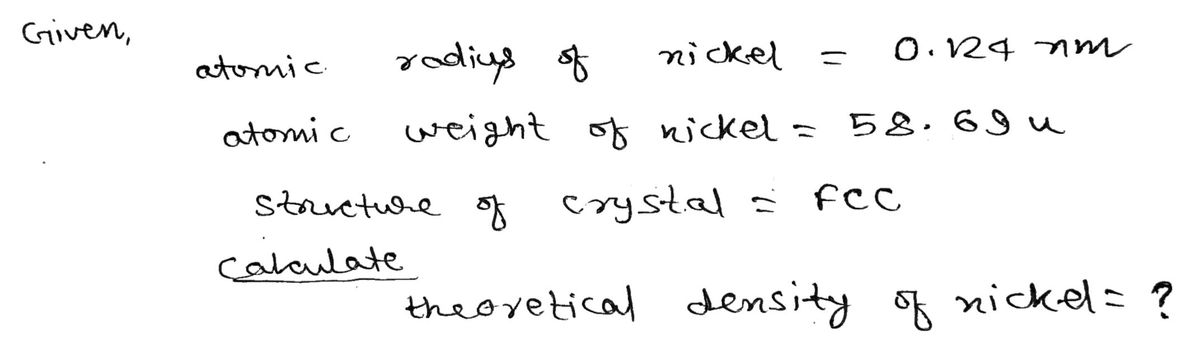 Given,
atomic radius of nickel = 0.124 nm
atomic weight of nickel = 58.69 u
structure of crystal = FCC
Calculate
theoretical density of nickel = ?